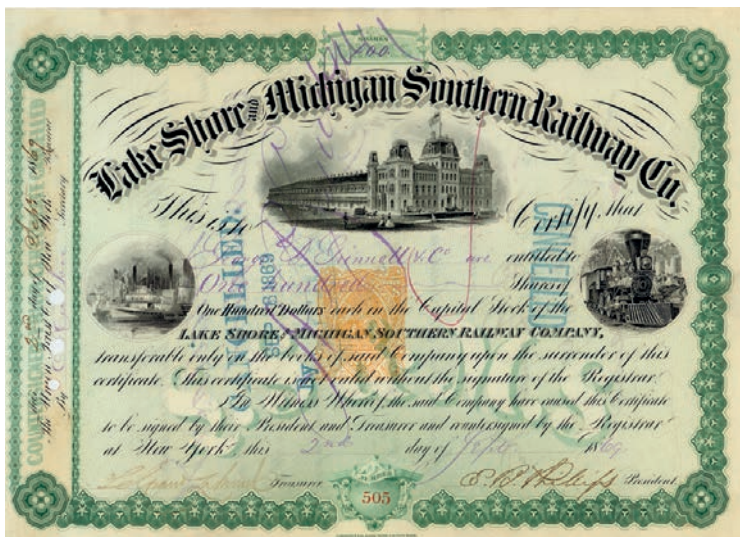 NUMBER
100
Lake Shore and Michigan Southern Railway Co.
This is to Certify that
Geo. B. Grinnell & Co are entitled to
One hundred Shares of
One Hundred Dollars each in the Capital Stock of the
LAKE SHORE & MICHIGAN SOUTHERN RAILWAY COMPANY,
transferable only on the books of said Company upon the surrender of this
certificate. This certificate is not valid without the signature of the Registrar.
In Witness Whereof, the said Company have caused this Certificate
to be signed by their President and Treasurer and countersigned by the Registrar
at New York, this 2nd day of Sept. 1869
Treasurer
President.
505
COUNTERSIGNED AND REGISTERED
this 2nd day of Sept 1869
By
Secretary
CANCELLED
SEP 1869
BY
CANCELLED